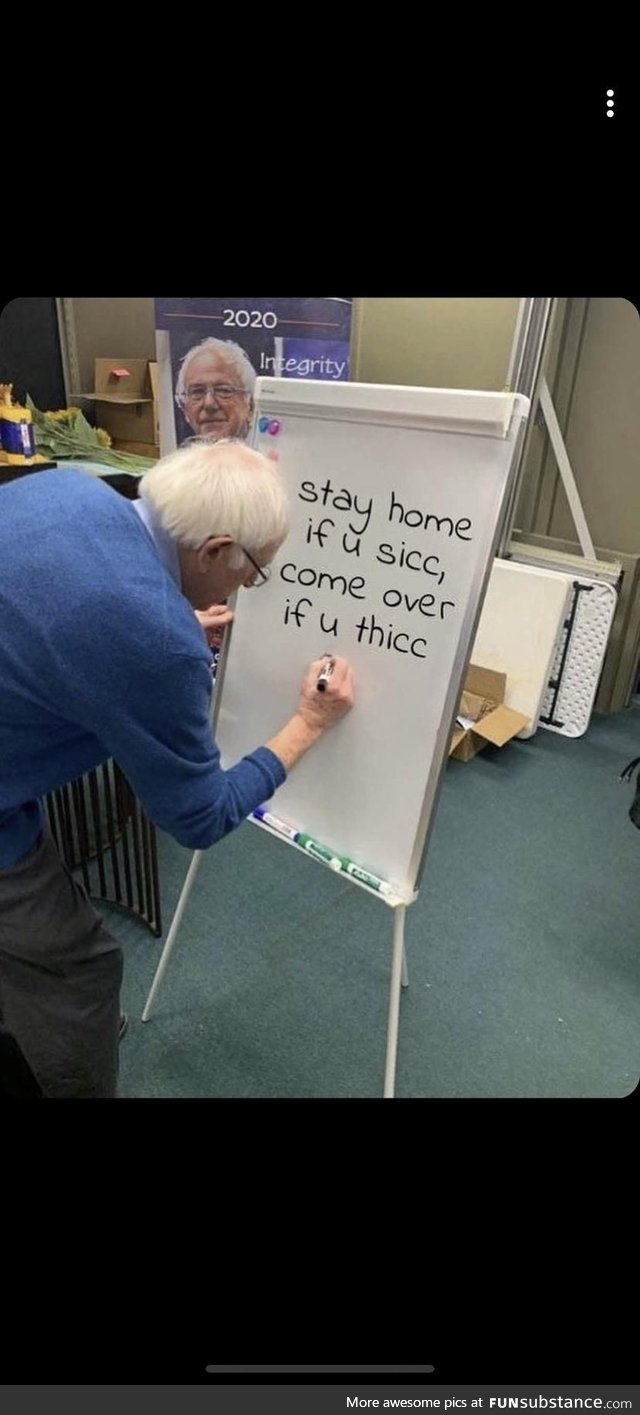 2020
Integrity
stay home
if u sicc,
come over
if u thicc
More awesome pics at FUNsubstance.com